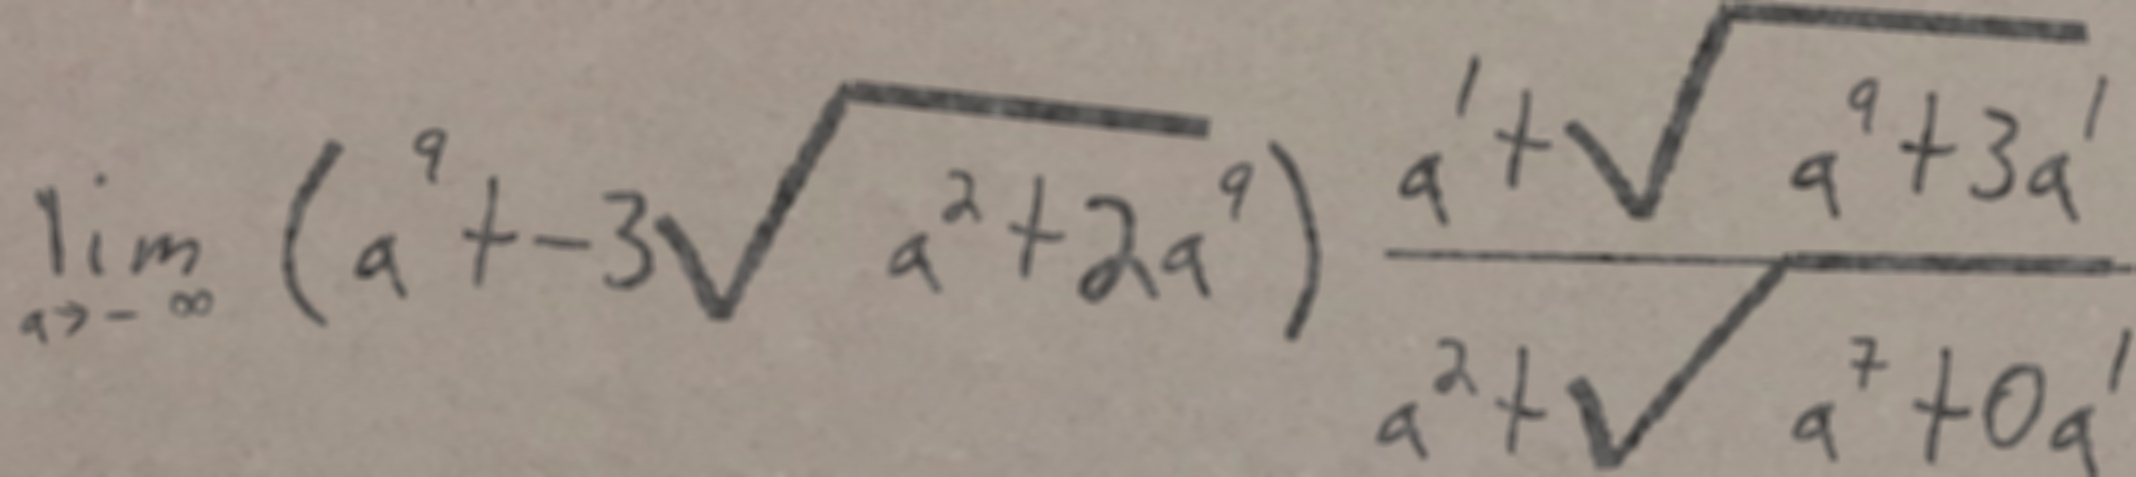 \lim_{a \to -\infty} \left(a^9 + -3\sqrt{a^2 + 2a^9}\right) \frac{a^1 + \sqrt{a^9 + 3a^1}}{a^2 + \sqrt{a^7 + 0a^1}}